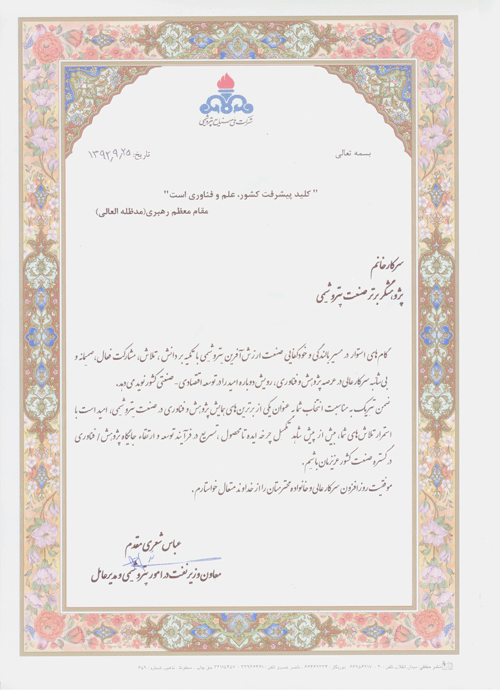 شرکت ملی صنایع پتروشیمی
بسمه تعالی
تاریخ: ۱۳۹۲,۹,۲۵
" کلید پیشرفت کشور، علم و فناوری است"
مقام معظم رهبری(مدظله العالی)
سرکار خانم
پژوهشگر برتر صنعت پتروشیمی
گام های استوار در مسیر بالندگی و خوداتکایی صنعت ارزش آفرین پتروشیمی با تکیه بر دانش، تلاش، مشارکت فعال، صمیمانه و
بی شائبه سرکار عالی در عرصه پژوهش و فناوری، رویش دوباره امید را در توسعه اقتصادی - صنعتی کشور نوید می دهد.
ضمن تبریک به مناسبت انتخاب شما به عنوان یکی از برترین های همایش پژوهش و فناوری در صنعت پتروشیمی، امید است با
استمرار تلاش های شما، بیش از پیش شاهد تکمیل چرخه ایده تا محصول، تسریع در فرآیند توسعه و ارتقاء جایگاه پژوهش / فناوری
در گستره صنعت کشور عزیزمان باشیم.
موفقیت روز افزون سرکار عالی و خانواده محترمتان را از خداوند متعال خواستارم.
عباس شعری مقدم
معاون وزیر نفت در امور پتروشیمی و مدیر عامل